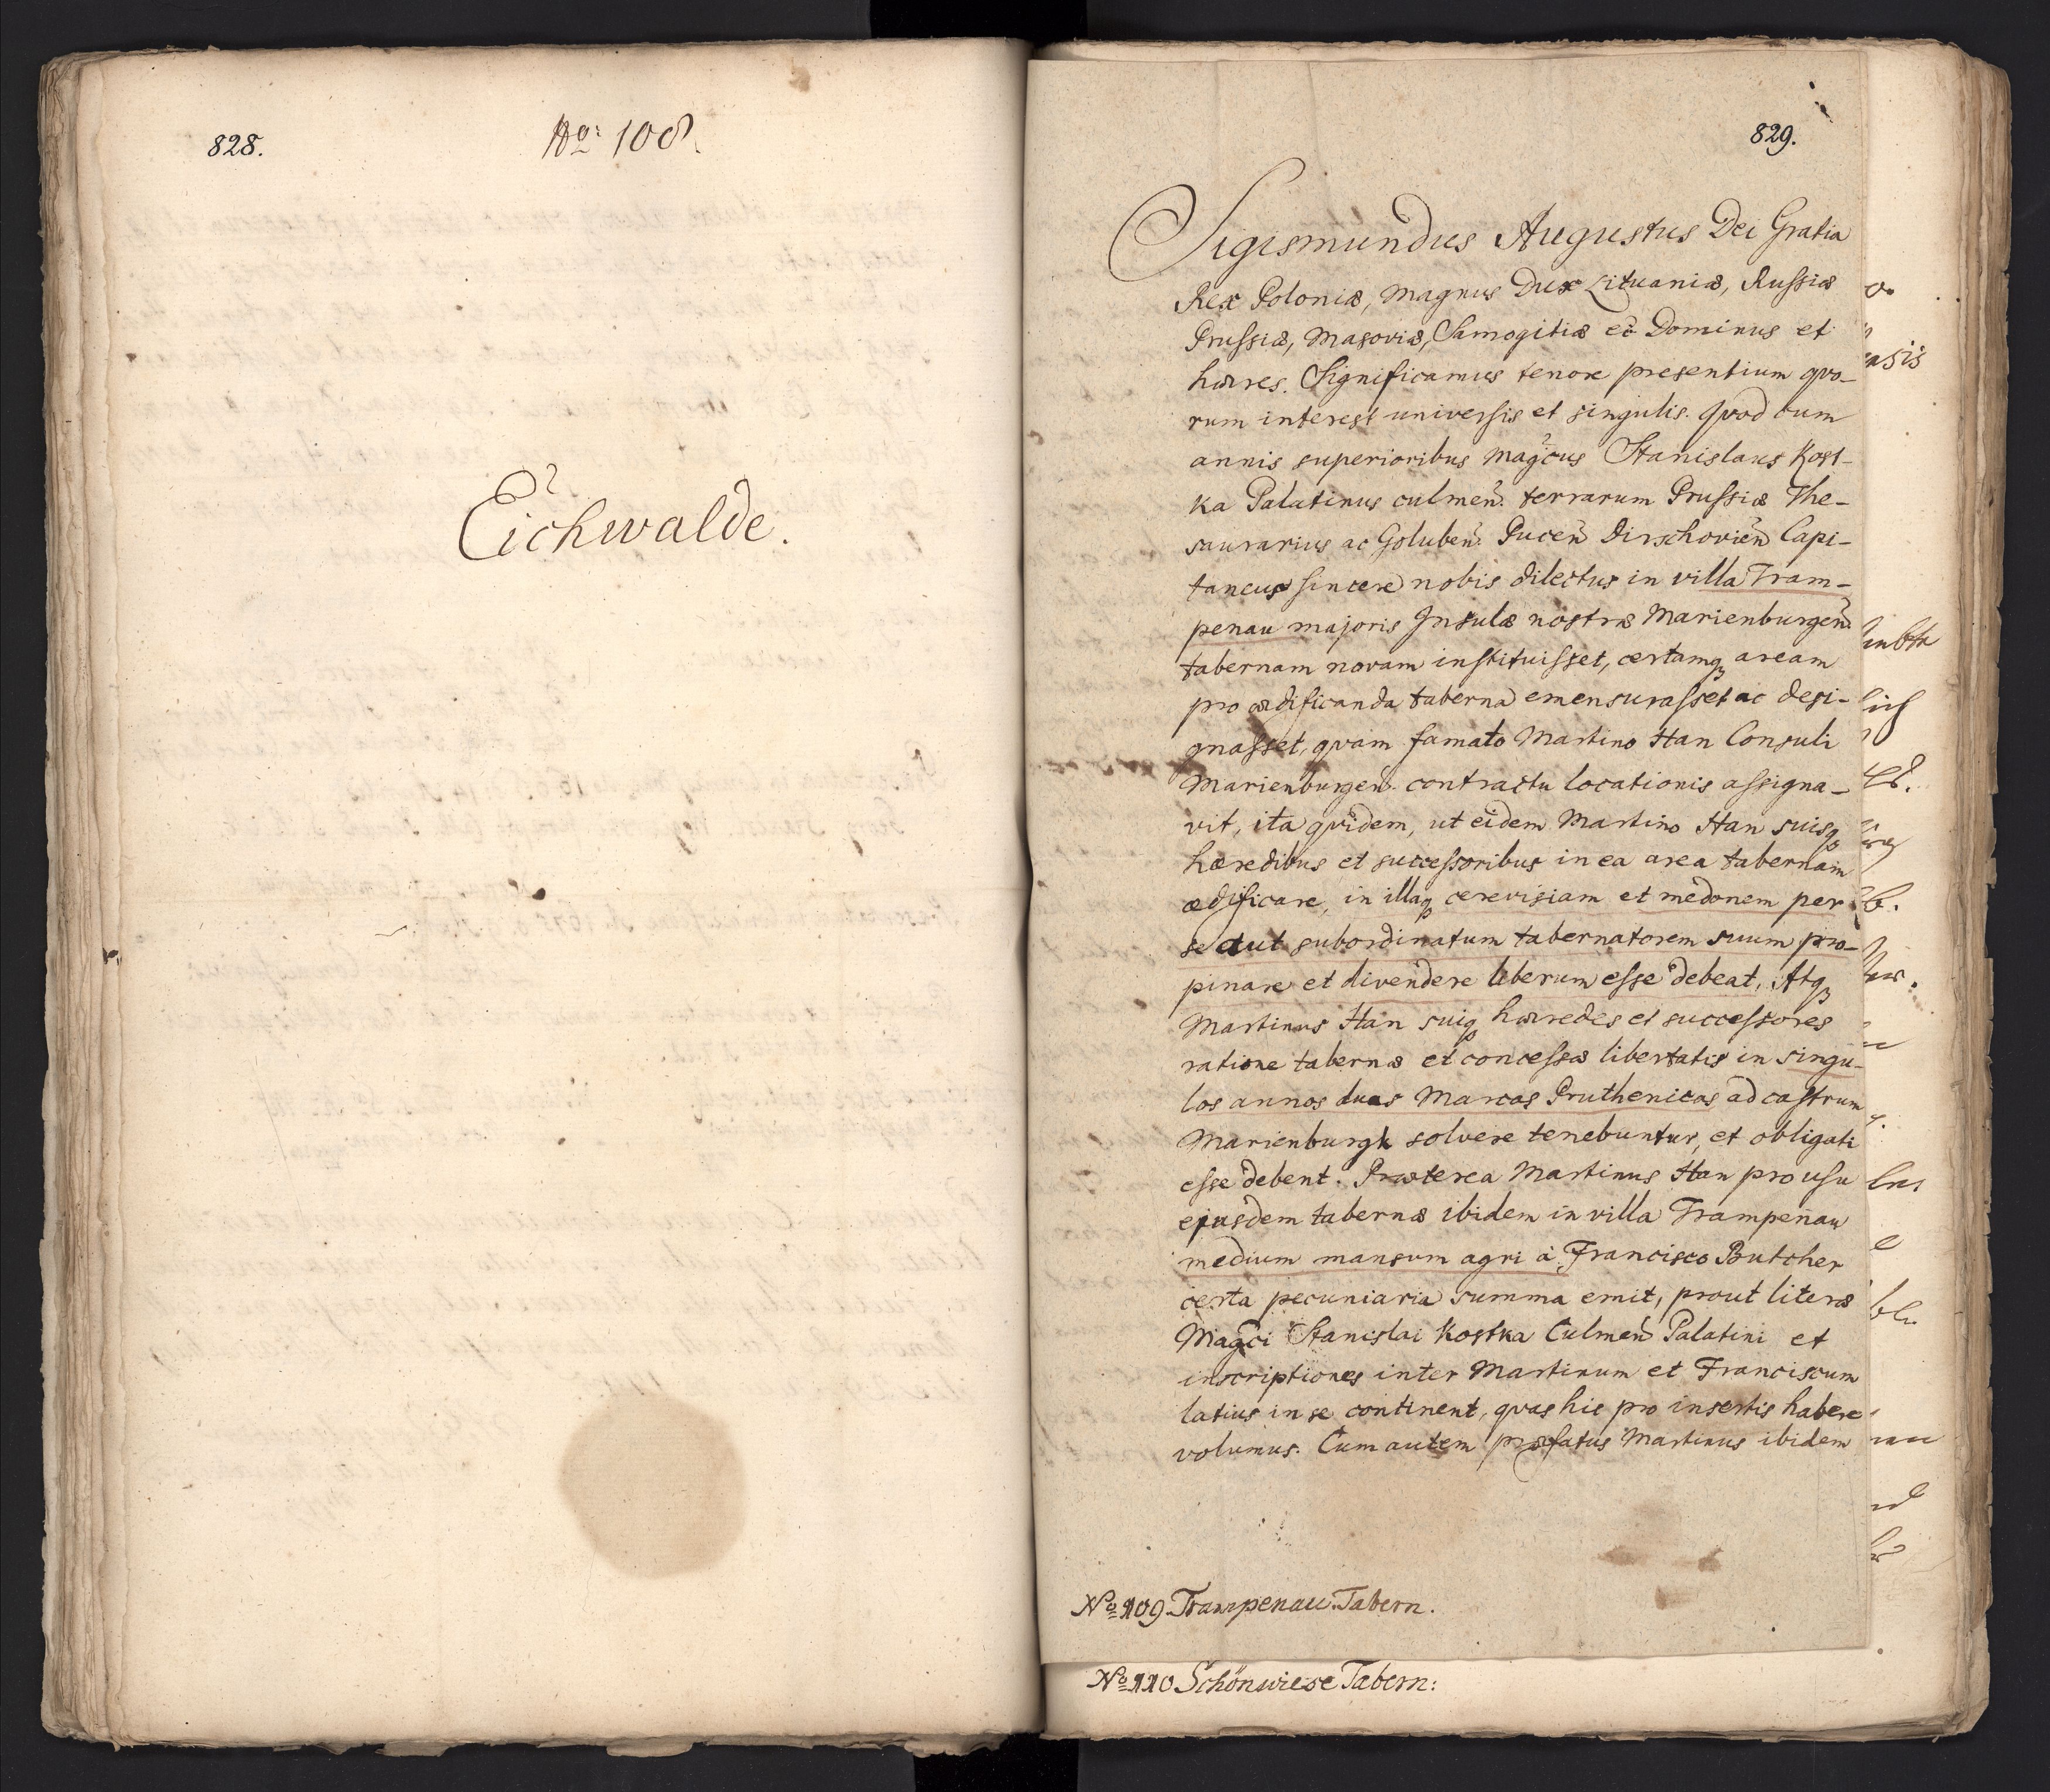 828.
No: 108.
Eichwalde.
829.
Sigismundus Augustus Dei Gratia
Rex Poloniæ, Magnus Dux Lituaniæ, Russiæ
Prussiæ, Masoviæ, Samogitiæ ec̃ Dominus et
hæres. Significamus tenore presentium qvo-
rum interest universis et singulis. Qvod cum
annis superioribus Mag̃cus Stanislaus Kost-
ka Palatinus culmeñ. terrarum Prussiæ The-
saurarius ac Golubeñ. Puceñ Dirschovieñ Capi-
taneus sincere nobis dilectus in villa Tram-
penau majoris Insulæ nostræ Marienburgeñ.
tabernam novam instituisset, certamqꝫ aream
pro ædificanda taberna emensurasset ac desi-
gnasset, qvam famato Martino Han Consuli
Marienburgeñ. contractu locationis assigna-
vit, ita qvidem, ut eidem Martino Han suisqꝫ
hæredibus et successoribus in ea area tabernam
ædificare, in illaqꝫ cerevisiam et medonem per
se aut subordinatum tabernatorem suum pro-
pinare et divendere liberum esse debeat, Atqꝫ
Martinus Han suiqꝫ hæredes et successores
ratione tabernæ et concessæ libertatis in singu-
los annos duas Marcas Pruthenicas ad castrum
Marienburgk solvere tenebuntur, et obligati
esse debent. Præterea Martinus Han pro usu
ejusdem tabernæ ibidem in villa Trampenau
medium mansum agri à Francisco Butcher
certa pecuniaria summa emit, prout literæ
Mag̃ci Stanislai Kostka Culmeñ Palatini et
inscriptiones inter Martinum et Franciscum
latius in se continent, qvas hic pro insertis habere
volumus. Cum autem præfatus Martinus ibidem
No 109 Trampenau. Tabern.
No 110 Schönwiese Tabern: